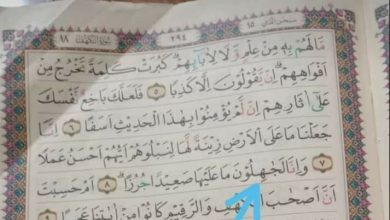 سُبْحٰنَ الَّذِي ١٥ ٢٩٤ سُورَةُ الْكَهْفِ ١٨
مَّا لَهُمْ بِهِ مِنْ عِلْمٍ وَّلَا لِاٰبَآئِهِمْ كَبُرَتْ كَلِمَةً تَخْرُجُ مِنْ
أَفْوَاهِهِمْ إِنْ يَّقُولُونَ إِلَّا كَذِبًا ٥ فَلَعَلَّكَ بَاخِعٌ نَّفْسَكَ
عَلٰٓى اٰثَارِهِمْ إِنْ لَّمْ يُؤْمِنُوا بِهٰذَا الْحَدِيثِ أَسَفًا ٦ إِنَّا
جَعَلْنَا مَا عَلَى الْأَرْضِ زِينَةً لَّهَا لِنَبْلُوَهُمْ أَيُّهُمْ أَحْسَنُ عَمَلًا
٧ وَإِنَّا الْجٰهِلُونَ مَا عَلَيْهَا صَعِيدًا جُرُزًا ٨ أَمْ حَسِبْتَ
أَنَّ أَصْحٰبَ الْكَهْفِ وَالرَّقِيمِ كَانُوا مِنْ اٰيٰتِنَا عَجَبًا